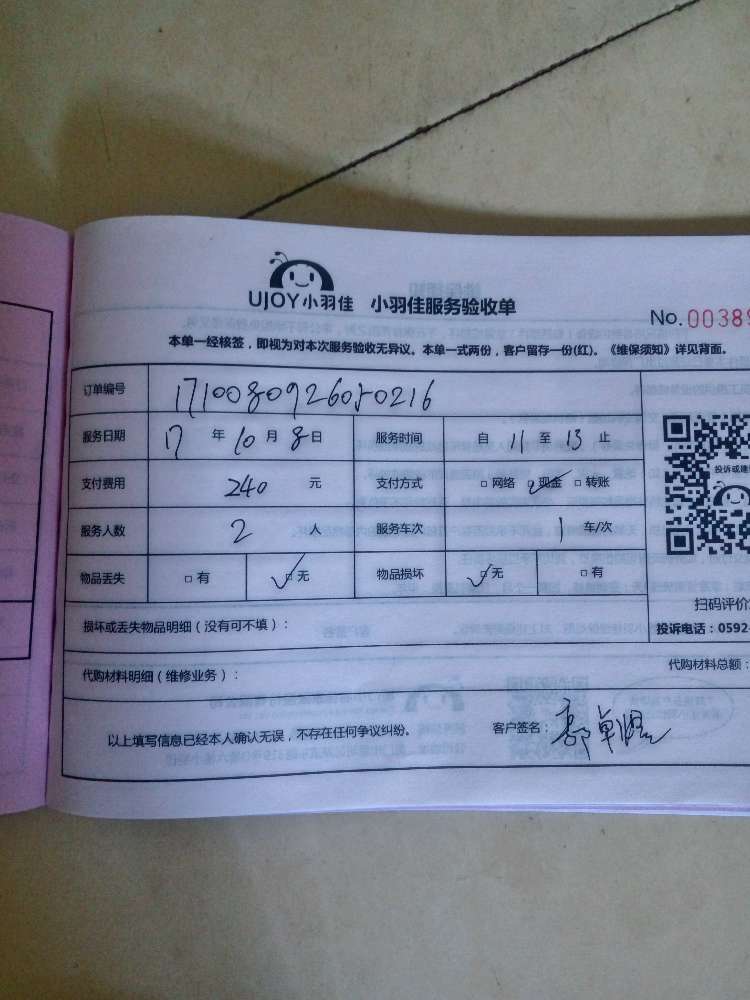 UJOY小羽佳 小羽佳服务验收单
No.00389
本单一经核签，即视为对本次服务验收无异议。本单一式两份，客户留存一份(红)。《维保须知》详见背面。
订单编号 171008092605０216
服务日期 17 年 10 月 8 日 服务时间 自 11 至 13 止
支付费用 240 元 支付方式 □网络 □现金 □转账
投诉或建
服务人数 2 人 服务车次 1 车/次
物品丢失 □有 □无 物品损坏 □无 □有
扫码评价
损坏或丢失物品明细（没有可不填）：
投诉电话：0592-
代购材料明细（维修业务）： 代购材料总额：
以上填写信息已经本人确认无误，不存在任何争议纠纷。 客户签名：